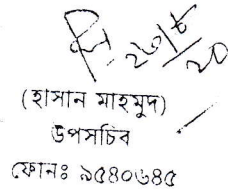 ২৬/৮/২০
(হাসান মাহমুদ)
উপসচিব
ফোনঃ ৯৫৪০৬৪৫